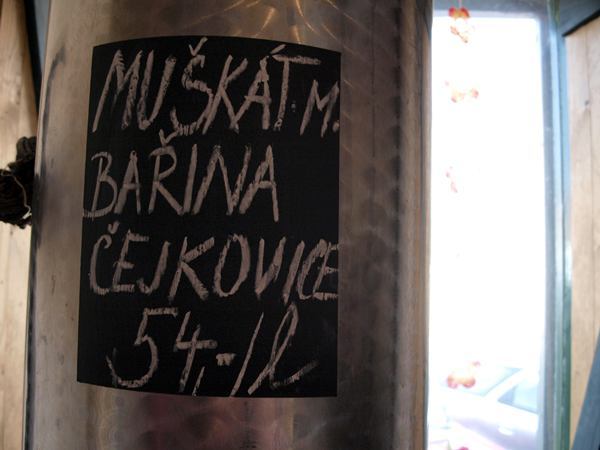 MUŠKÁT.M.
BAŘINA
ČEJKOVICE
54,-/l